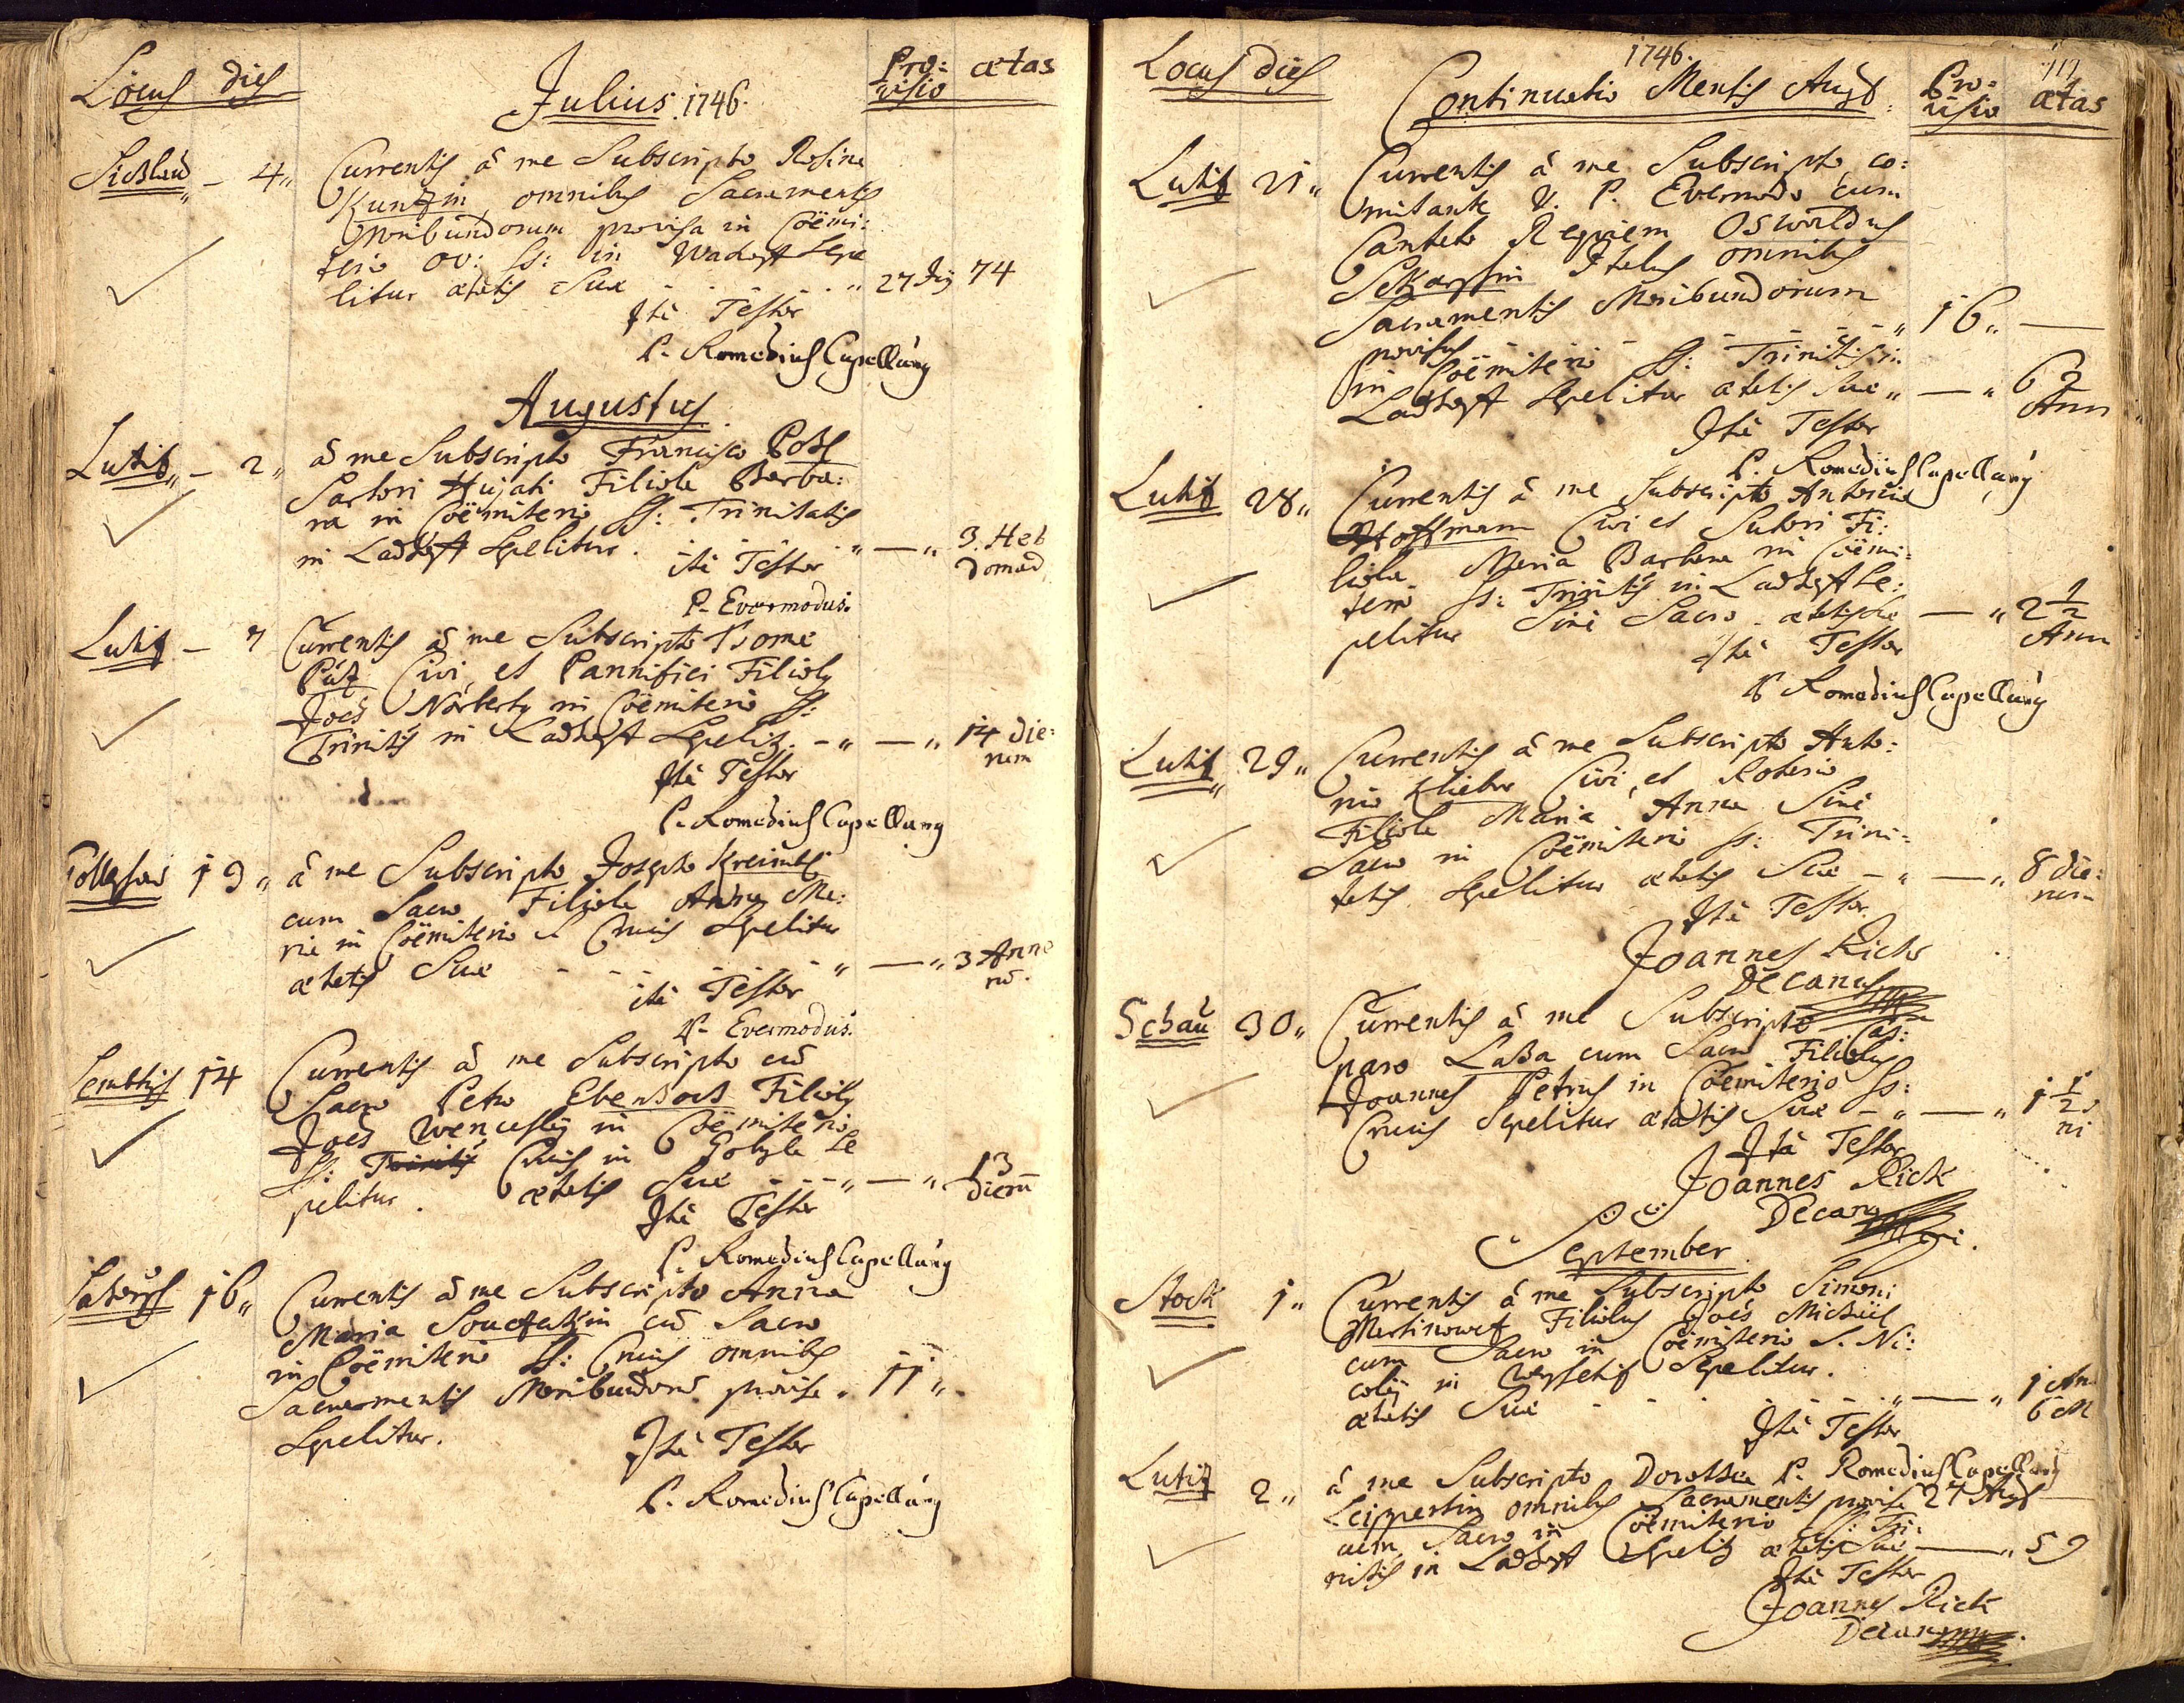 Locus dies
Julius 1746.
Pro:
visio
ætas
4„
Currentis â me Subscripto Rosina
Kuntzin omnibus Sacramentis
Moribundorum provisa in Coëmi:
terio OO: SS: in Sepe
litur ætatis Suæ 27 Jụ 74
Ità Testor
P. Romedius Capellanus
Augustus
Lutitz – 2„
â me Subscripto Francisco
Sartori Hujati Filiola Barba:
ra in Coëmiterio SS: Trinitatis
in Ladhost Sepelitur. „ — „ 3. Heb
domad
ità Testor
P. Evermodus.
Lutitz – 7
Currentis â me Subscripto
Pütz Civi, et Pannifici Filiolus
Joës Norbertus in Coëmiterio SS:
Trinitis in Ladhost Sepelitur – „ — „ 14 die:
rum
Ità Testor
P. Romedius Capellanus
13„
â me Subscripto Josepho
cum Sacro Filiola Anna Ma:
ria in Coëmiterio S Crucis Sepelitur
ætatis Suæ „ — „ 3 Anno
rũ.
ità Testor
P. Evermodus.
14
Currentis â me Subscripto cũ
Sacro Petro Filiolus
Joës Wenceslaus in Coëmiterio
SS: Trinitis Crucis in Se
pelitur. ætatis Suæ „ — „ 13
dierũ
Ità Testor
P. Romedius Capellanus
16„
Currentis â me Subscripto Anna
Maria cũ Sacro
in Coëmiterio SS: Crucis omnibus
Sacramentis Moribundorũ provisa. 11„
Sepelitur.
Ità Testor
P. Romedius Capellanus
Locus dies
1746.
Continuatio Mensis Augs
Pro:
visio
ætas
Lutitz 21„
Currentis â me Subscripto, co:
mitante V. P. Evermodo cum
Cantato Requiem Oswaldus
omnibus
Sacramentis Moribundorum
provisus „ 16„ —
in Coëmiterio SS: Trinitis in
Ladhost Sepelitur ætatis suæ „ — „ 62
Ann
Ità Testor
P. Romedius Capellanus
Lutitz 28„
Currentis â me Subscripto Antonio
Hoffmann Civi et Sutori Fi:
liola Maria Barbara in Coëmi:
terio SS: Trinitis in Ladhost Se:
pelitur Sinè Sacro. ætatis suæ — „ 2 1/2
Ann
Ità Testor
P. Romedius Capellanus
Lutitz 29„
Currentis â me Subscripto Anto:
nio Klieber Civi, et
Filiola Maria Anna Sinè
Sacro in Coëmiterio SS: Trini:
tatis Sepelitur ætatis Suæ – „ — „ 8 die:
rum
Ità Testor
Joannes Rick
Decanus
Schau 30„
Currentis â me Subscripto Cas:
paro Laßa cum Sacro Filiolus
Joannes Petrus in Coëmiterio SS:
Crucis Sepelitur ætatis Suæ – „ — „ 1 1/2
Ità Testor
Joannes Rick
Decanus
September
Stock 1„
Currentis â me Subscripto Simoni
Martinowetz Filiolus Joës Michaël
cum Sacro in Coëmiterio S. Ni:
colai in Sepelitur.
ætatis Suæ „ — „ 1 An
6 M
Ità Testor
P. Romedius Capellanus
Lutitz 2„
â me Subscripto Dorothea
Leippertin omnibus Sacramentis provisa 27 Augs
cum Sacro in Coëmiterio SS: Tri:
nitis in Ladhost Sepelitur ætatis Suæ — „ 59
Ità Testor
Joannes Rick
Decanus